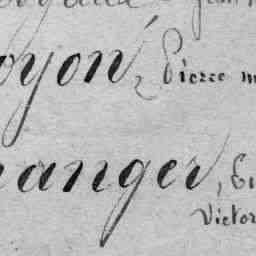 oyon, Pierre m
anger, Eu
Victor